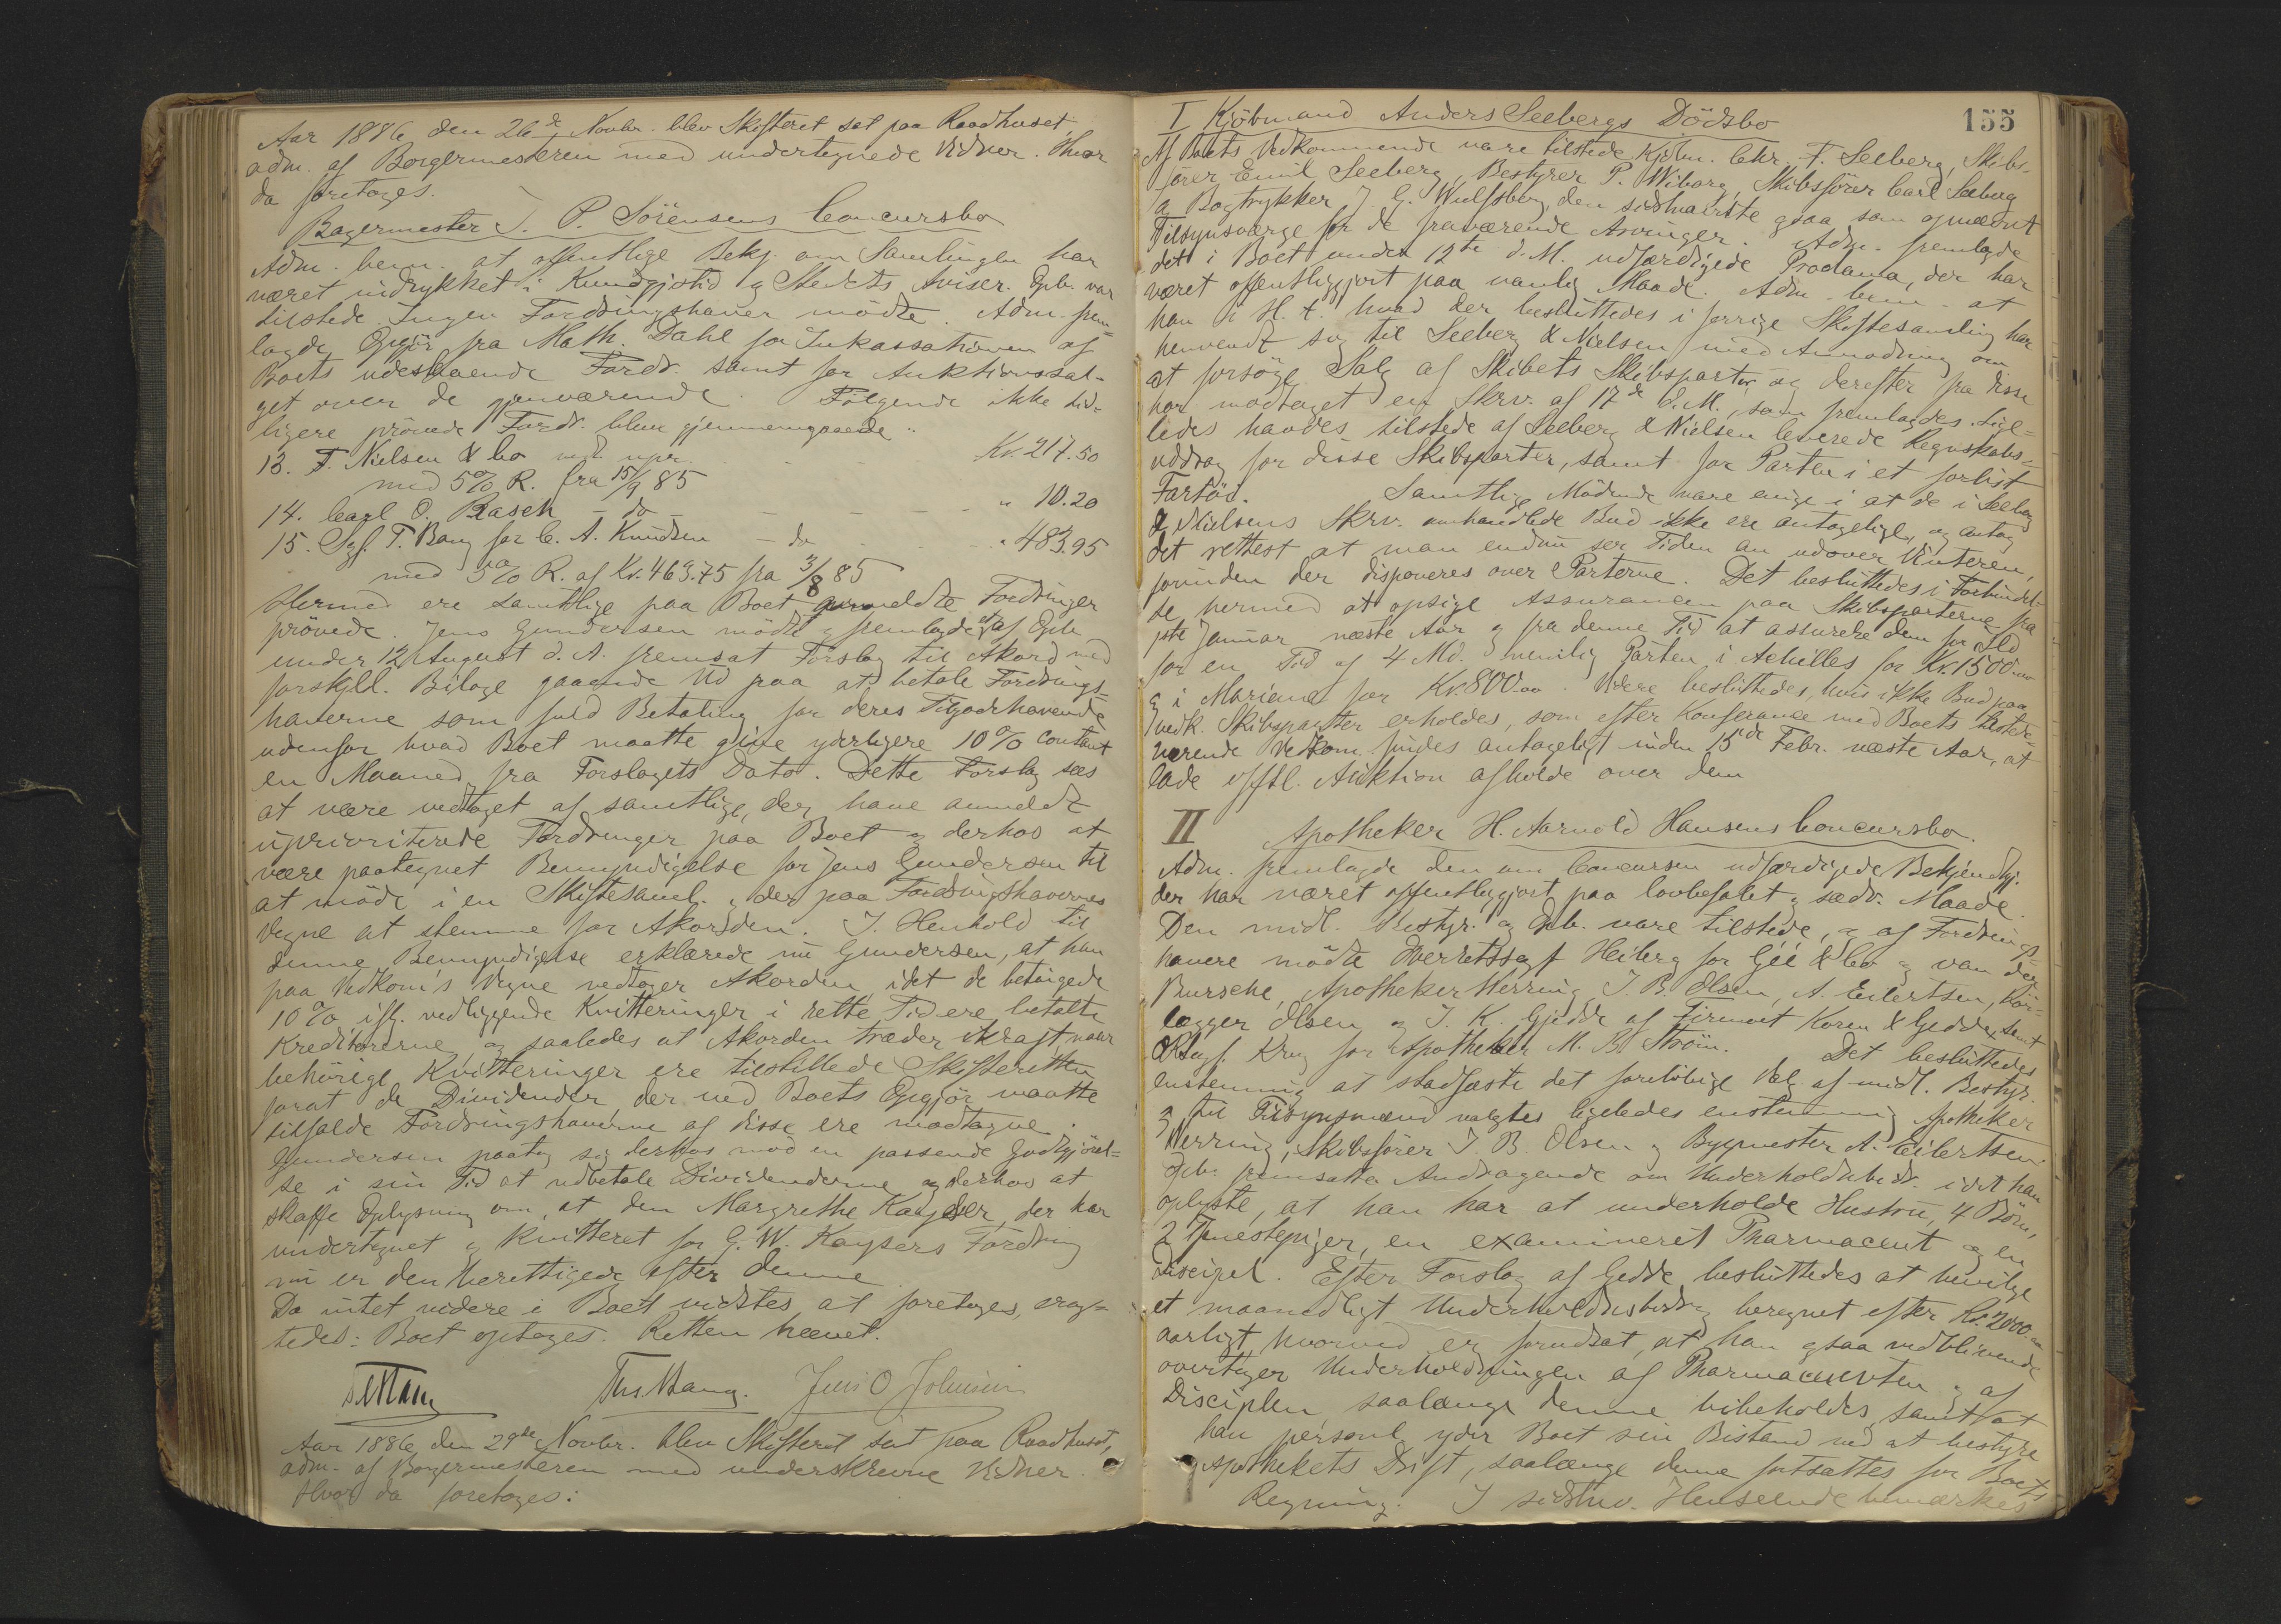 Aar 1886 den 26de Novbr. blev Skifteret sat paa Raadhuset,
adm. af Borgermesteren med undertegnede Vidner. Hvor
da foretoges.
Bagermester T. P. Sörensens Concursbo
Adm. bem. at offentlige Bekj. om Samlingen har
været indrykket i Kundgjøtid. og Stedets Aviser. Opb. var
tilstede. Ingen Fordringshaver mödte. Adm. frem=
lagde Opgjör fra Math. Dahl for Inkassationen af
Boets udestaaende Fordr. samt for Auktionssal-
get over de gjenværende. Fölgende ikke tid-
ligere prövede Fordr. blev gjennemgaaede:
13. F. Nielsen & Co ved. upr. Kr. 217.50
med 5% R. fra 15/9 85
14. Carl O. Rasch - do - " 10.20
15. Sagf. T. Bang for C. A. Knudsen - do " 483.95
med 5% R. af Kr. 463.75 fra 3/8 85
Hermed ere samtlige paa Boet anmeldte Fordringer
prövede. Jens Gundersen mödte og fremlagde et af Opb.
under 12 August d. A. fremsat Forslag til Akord med
forskjell. Bilage gaaende ud paa at betale Fordrings=
haverne som fuld Betaling for deres Tilgodehavende
udenfor hvad Boet maatte give yderligere 10% contant
en Maaned fra Forslagets Dato. Dette Forslag sees
at være vedtaget af samtlige, der have anmeldt
uprioriterede Fordringer paa Boet og derhos at
være paategnet Bemyndigelse for Jens Gundersen til
at möde i en Skiftesaml. og der paa Fordringshavernes
Vegne at stemme for Akorden. I Henhold til
denne Bemyndigelse erklærede nu Gundersen, at han
paa Vedkom's Vegne vedtager Akorden, idet de betingede
10% iflg. vedliggende Kvitteringer i rette Tid ere betalte
Kreditorerne og saaledes at Akorden træder ikraft, naar
behörige Kvitteringer ere tilstillede Skifteretten
forat de Dividender, der ved Boets Opgjör maatte
tilfalde Fordringshaverne af disse ere modtagne.
Gundersen paatog sig derhos mod en passende Godtgjörel=
se i sin Tid at udbetale Dividenderne og derhos at
skaffe Oplysning om, at den Margrethe Kayser, der har
undertegnet og kvitteret for G. W. Kaysers Fordring
nu er den berettigede efter denne.
Da intet videre i Boet vidstes at foretages, erag=
tedes: Boet optages. Retten hævet.
Ths. Bang. Jens O Johnsen
Aar 1886 den 29de Novbr. blev Skifteret sat paa Raadhuset,
adm. af Borgermesteren med underskrevne Vidner.
Hvor da foretoges:
155
I Kjöbmand Anders Seebergs Dödsbo
Af Boets Vedkommende vare tilstede Kjöbm. Chr. F. Seeberg, Skibs-
förer Emil Seeberg, Bestyrer P. Wiborg, Skibsförer Carl Seeberg
og Bogtrykker J. G. Wulfsberg, den sidstnævnte ogsaa som opnævnt
Tilsynsværge for de fraværende Arvinger. Adm. fremlagde
det i Boet under 12te d. M. udfærdigede Proclama, der har
været offentliggjort paa vanlig Maade. Adm. bem. at
han i H. t. hvad der besluttedes i forrige Skiftesamling har
henvendt sig til Seeberg & Nielsen med Anmodning om
at forsöge Salg af Skibets Skibsparter og derefter fra disse
har modtaget en Skrv. af 17de d. M., som fremlagdes. Lige=
ledes havdes tilstede af Seeberg & Nielsen leverede Regnskabs=
uddrag for disse Skibsparter, samt for Parten i et forlist
Fartöi. Samtlige Mödende vare enige i at de i Seeberg
& Nielsens Skrv. omhandlede Bud ikke ere antagelige, og antog
det rettest at man endnu ser Tiden an udover Vinteren,
forinden der disponeres over Parterne. Det besluttedes i Forbindel-
se hermed at opsige Assurancen paa Skibsparterne fra
1ste Januar næste Aar og fra denne Tid at assurere dem for Ild
for en Tid af 4 Md. nemlig Parten i Achilles for Kr. 1500.00
og i Mariane for Kr. 800.00. Videre besluttedes, hvis ikke Bud paa
vedk. Skibsparter erholdes, som efter Konferance med Boets tilstede-
værende Vedkom. findes antageligt inden 15de Febr. næste Aar, at
lade offtl. Auktion afholde over dem
II Apotheker H. Aarnold Hansens Concursbo.
Adm. fremlagde den om Concursen udfærdigede Bekjendtgj.
der har været offentliggjort paa lovbefalet og sædv. Maade.
Den midl. Bestyr. og Opb. vare tilstede, og af Fordrings-
havere mödte Overretssagf Heiberg for Géé & Co og van der
Bursche, Apotheker Herring, J. B. Olsen, A. Eilertsen, Kör-
lægger Olsen og J. K. Gjedde af Firmaet Koren & Gedde, samt
ORsagf. Krog for Apotheker M. B. Ström. Det besluttedes
enstemmig at stadfæste det foreløbige Valg af midl. Bestyr.
og til Tilsynsmænd valgtes ligeledes enstemmig Apotheker
Herring, Skibsförer J. B. Olsen og Bygmester A. Eilertsen.
Opb. fremsatte Andragende om Underholdsbidr. idet han
oplyste, at han har at underholde Hustru, 4 Börn,
2 Tjenestepiger, en examineret Pharmaceut og en
Discipel. Efter Forslag af Gedde besluttedes at bevilge
et maanedligt Underholdsbidrag beregnet efter Kr. 2000.00
aarligt, hvorved er forudsat, at han ogsaa vedblivende
overtager Underholdningen af Pharmaceuten og af
Disciplen, saalænge denne bibeholdes, samt at
han personl. yder Boet sin Bistand ved at bestyre
Apothekets Drift, saalænge denne fortsættes for Boets
Regning. I sidstnv. Henseende bemærkes